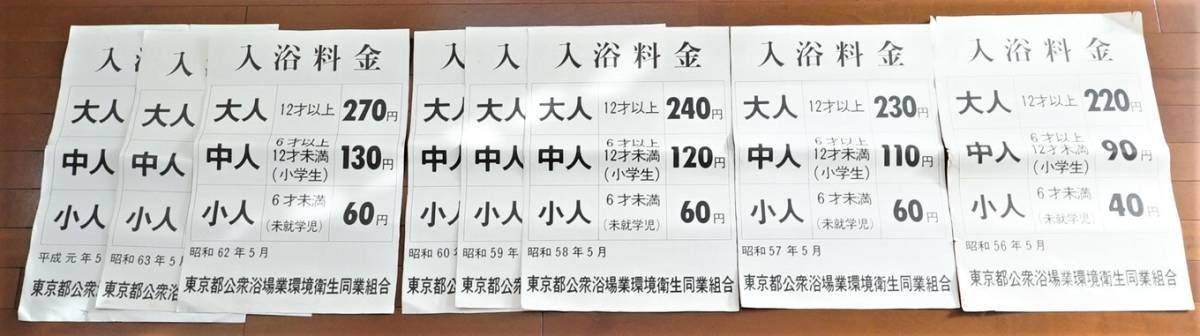 入
大人
中人
小人
平成元年5
東京都公衆
入
大人
中人
小人
昭和63年5月
東京都公衆浴
入浴料金
大人 12才以上 270円
中人 6才以上 12才未満 (小学生) 130円
小人 6才未満 (未就学児) 60円
昭和62年5月
東京都公衆浴場業環境衛生同業組合
入
大
中
小
昭和60
東京都公
入
大人
中人
小人
昭和59年
東京都公
入浴料金
大人 12才以上 240円
中人 6才以上 12才未満 (小学生) 120円
小人 6才未満 (未就学児) 60円
昭和58年5月
東京都公衆浴場業環境衛生同業組合
入浴料金
大人 12才以上 230円
中人 6才以上 12才未満 (小学生) 110円
小人 6才未満 (未就学児) 60円
昭和57年5月
東京都公衆浴場業環境衛生同業組合
入浴料金
大人 12才以上 220円
中人 6才以上 12才未満 (小学生) 90円
小人 6才未満 (未就学児) 40円
昭和56年5月
東京都公衆浴場業環境衛生同業組合